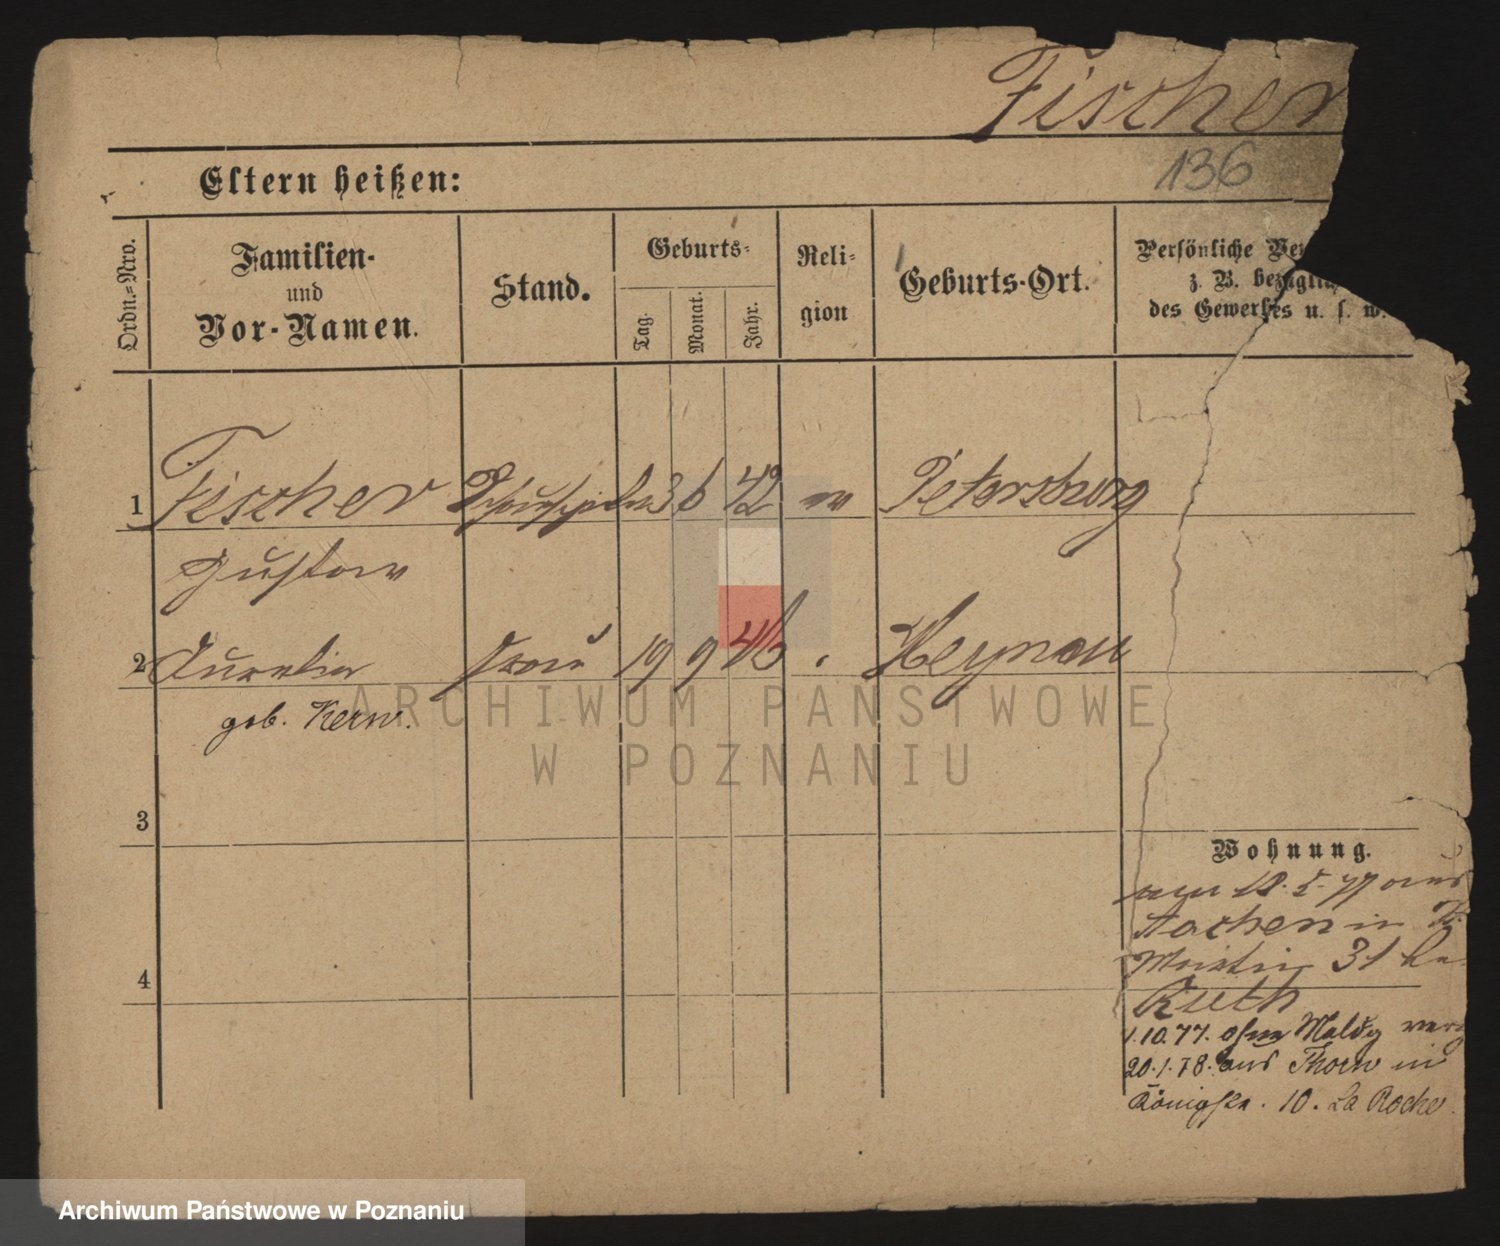 Fischer
136
Eltern heißen:
Ordn.=Nro.
Familien-
und
Vor-Namen.
Stand.
Geburts-
Tag.
Monat.
Jahr.
Reli-
gion
Geburts-Ort.
Persönliche
z. B. bezüglich
des Gewerbes u. s. w.
1 Fischer Schauspieler 3 6 42 Petersburg
Gustav
2 Aurelia Frau 19 9 46 Heynau
geb. Kern.
3
4
Wohnung.
18. 5. 77 aus
Aachen in
31 
Ruth
1.10.77. ohne Meldg
20.1.78. aus Thorn in
Königstr. 10. La Roche.
ARCHIWUM PAŃSTWOWE
W POZNANIU
Archiwum Państwowe w Poznaniu